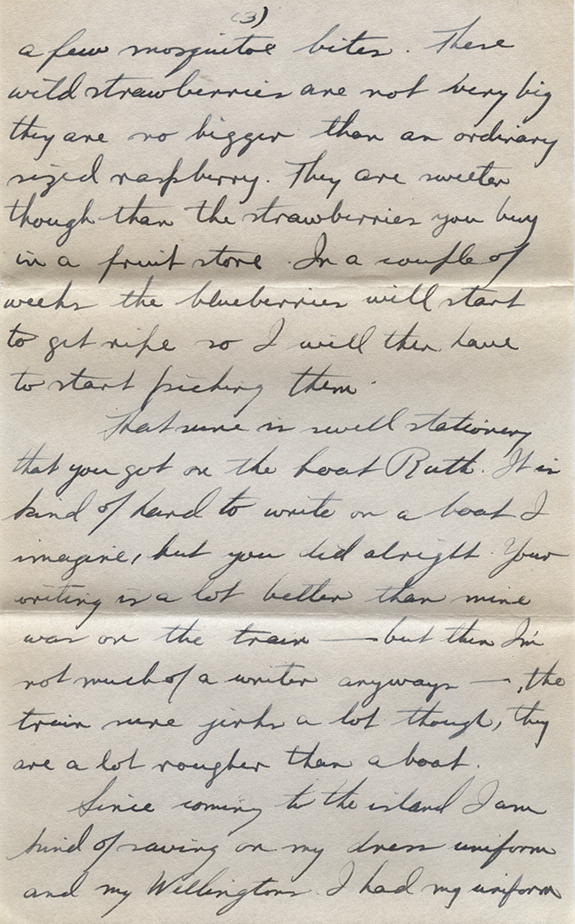 (3)
a few mosquitoe bites. These
wild strawberries are not very big
they are no bigger than an ordinary
sized raspberry. They are sweeter
though than the strawberries you buy
in a fruit store. In a couple of
weeks the blueberries will start
to get ripe so I will then have
to start picking them.
That sure is swell stationery
that you got on the boat Ruth. It is
kind of hard to write on a boat I
imagine, but you did alright. Your
writing is a lot better than mine
was on the train — but then I'm
not much of a writer anyways —, the
train sure jerks a lot though, they
are a lot rougher than a boat.
Since coming to the island I am
kind of saving on my dress uniform
and my Wellingtons. I had my uniform